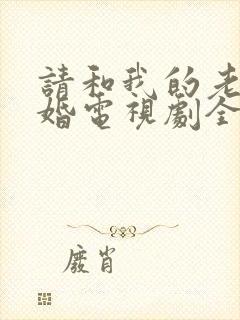 請和我的老
婚電視劇全
廢肖